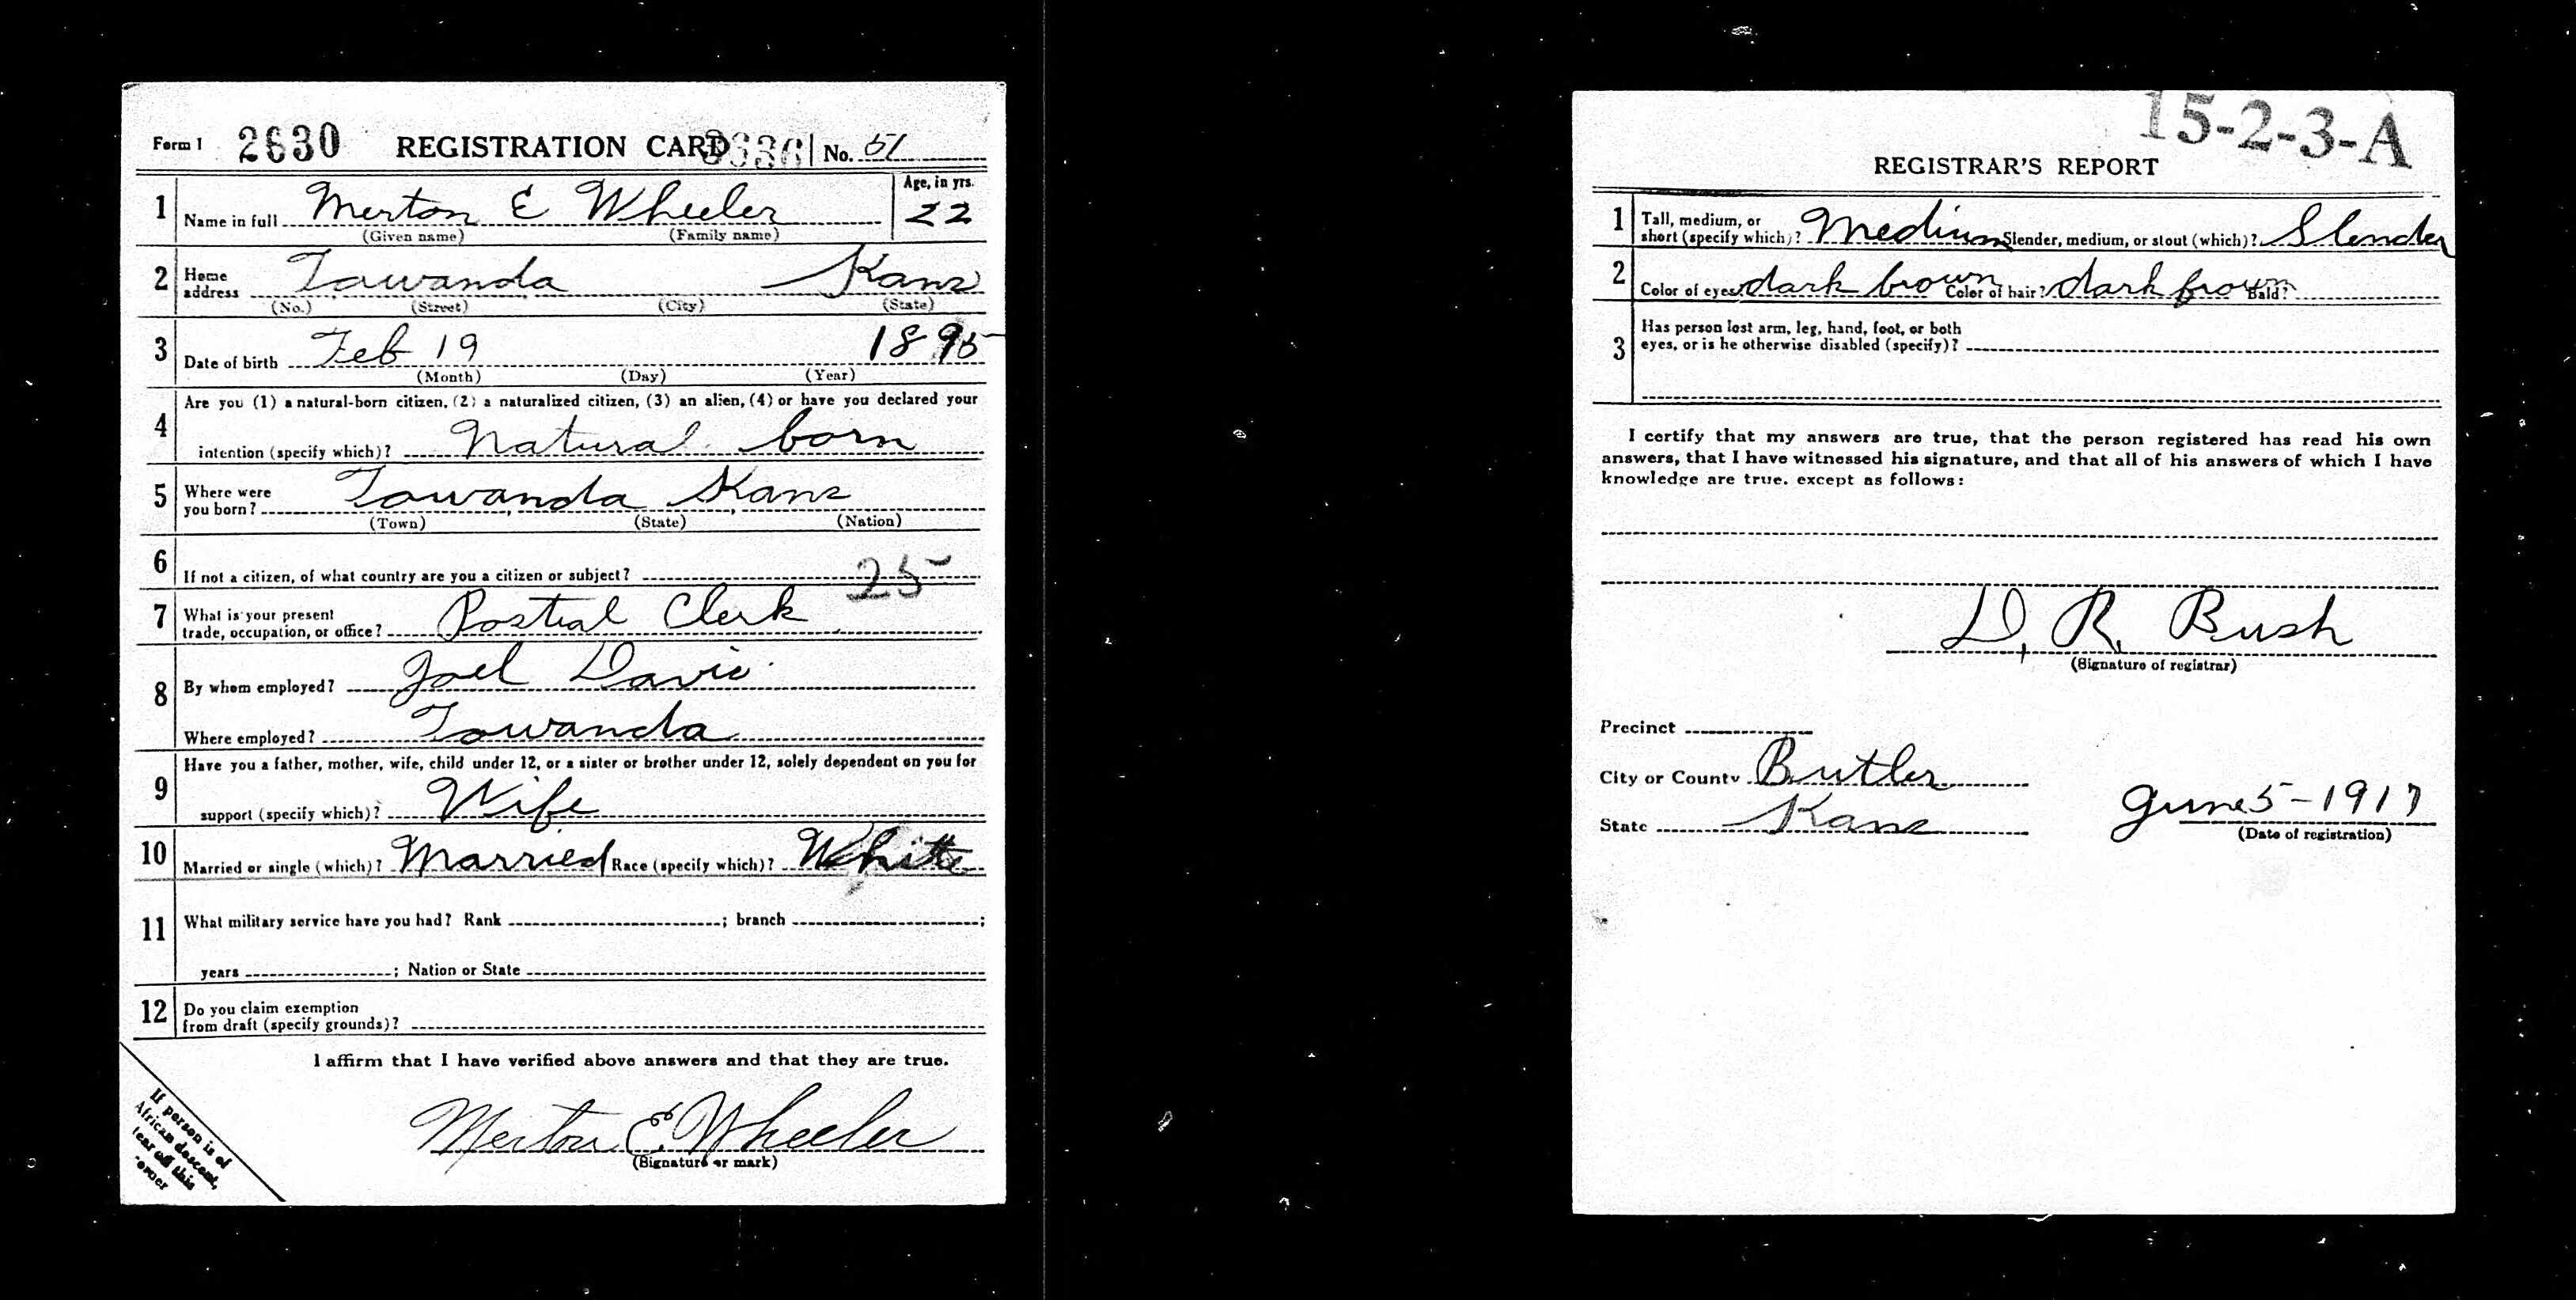 Form 1 2630 REGISTRATION CARD No. 51
1 Name in full Merton E Wheeler Age, in yrs. 22
(Given name) (Family name)
2 Home address Towanda Kans
(No.) (Street) (City) (State)
3 Date of birth Feb 19 1895
(Month) (Day) (Year)
4 Are you (1) a natural-born citizen, (2) a naturalized citizen, (3) an alien, (4) or have you declared your
intention (specify which)? Natural born
5 Where were you born? Towanda Kans
(Town) (State) (Nation)
6 If not a citizen, of what country are you a citizen or subject?
25
7 What is your present
trade, occupation, or office? Postial Clerk
8 By whom employed? Joel Davis
Where employed? Towanda
9 Have you a father, mother, wife, child under 12, or a sister or brother under 12, solely dependent on you for
support (specify which)? Wife
10 Married or single (which)? Married Race (specify which)? White
11 What military service have you had? Rank ; branch ;
years ; Nation or State
12 Do you claim exemption
from draft (specify grounds)?
I affirm that I have verified above answers and that they are true.
Merton E. Wheeler
(Signature or mark)
If person is of
African descent,
tear off this
corner
15-2-3-A
REGISTRAR'S REPORT
1 Tall, medium, or
short (specify which)? Medium Slender, medium, or stout (which)? Slender
2 Color of eyes dark brown Color of hair? dark brown Bald?
3 Has person lost arm, leg, hand, foot, or both
eyes, or is he otherwise disabled (specify)?
I certify that my answers are true, that the person registered has read his own
answers, that I have witnessed his signature, and that all of his answers of which I have
knowledge are true, except as follows:
D. R. Bush
(Signature of registrar)
Precinct
City or County Butler
State Kans
June 5-1917
(Date of registration)